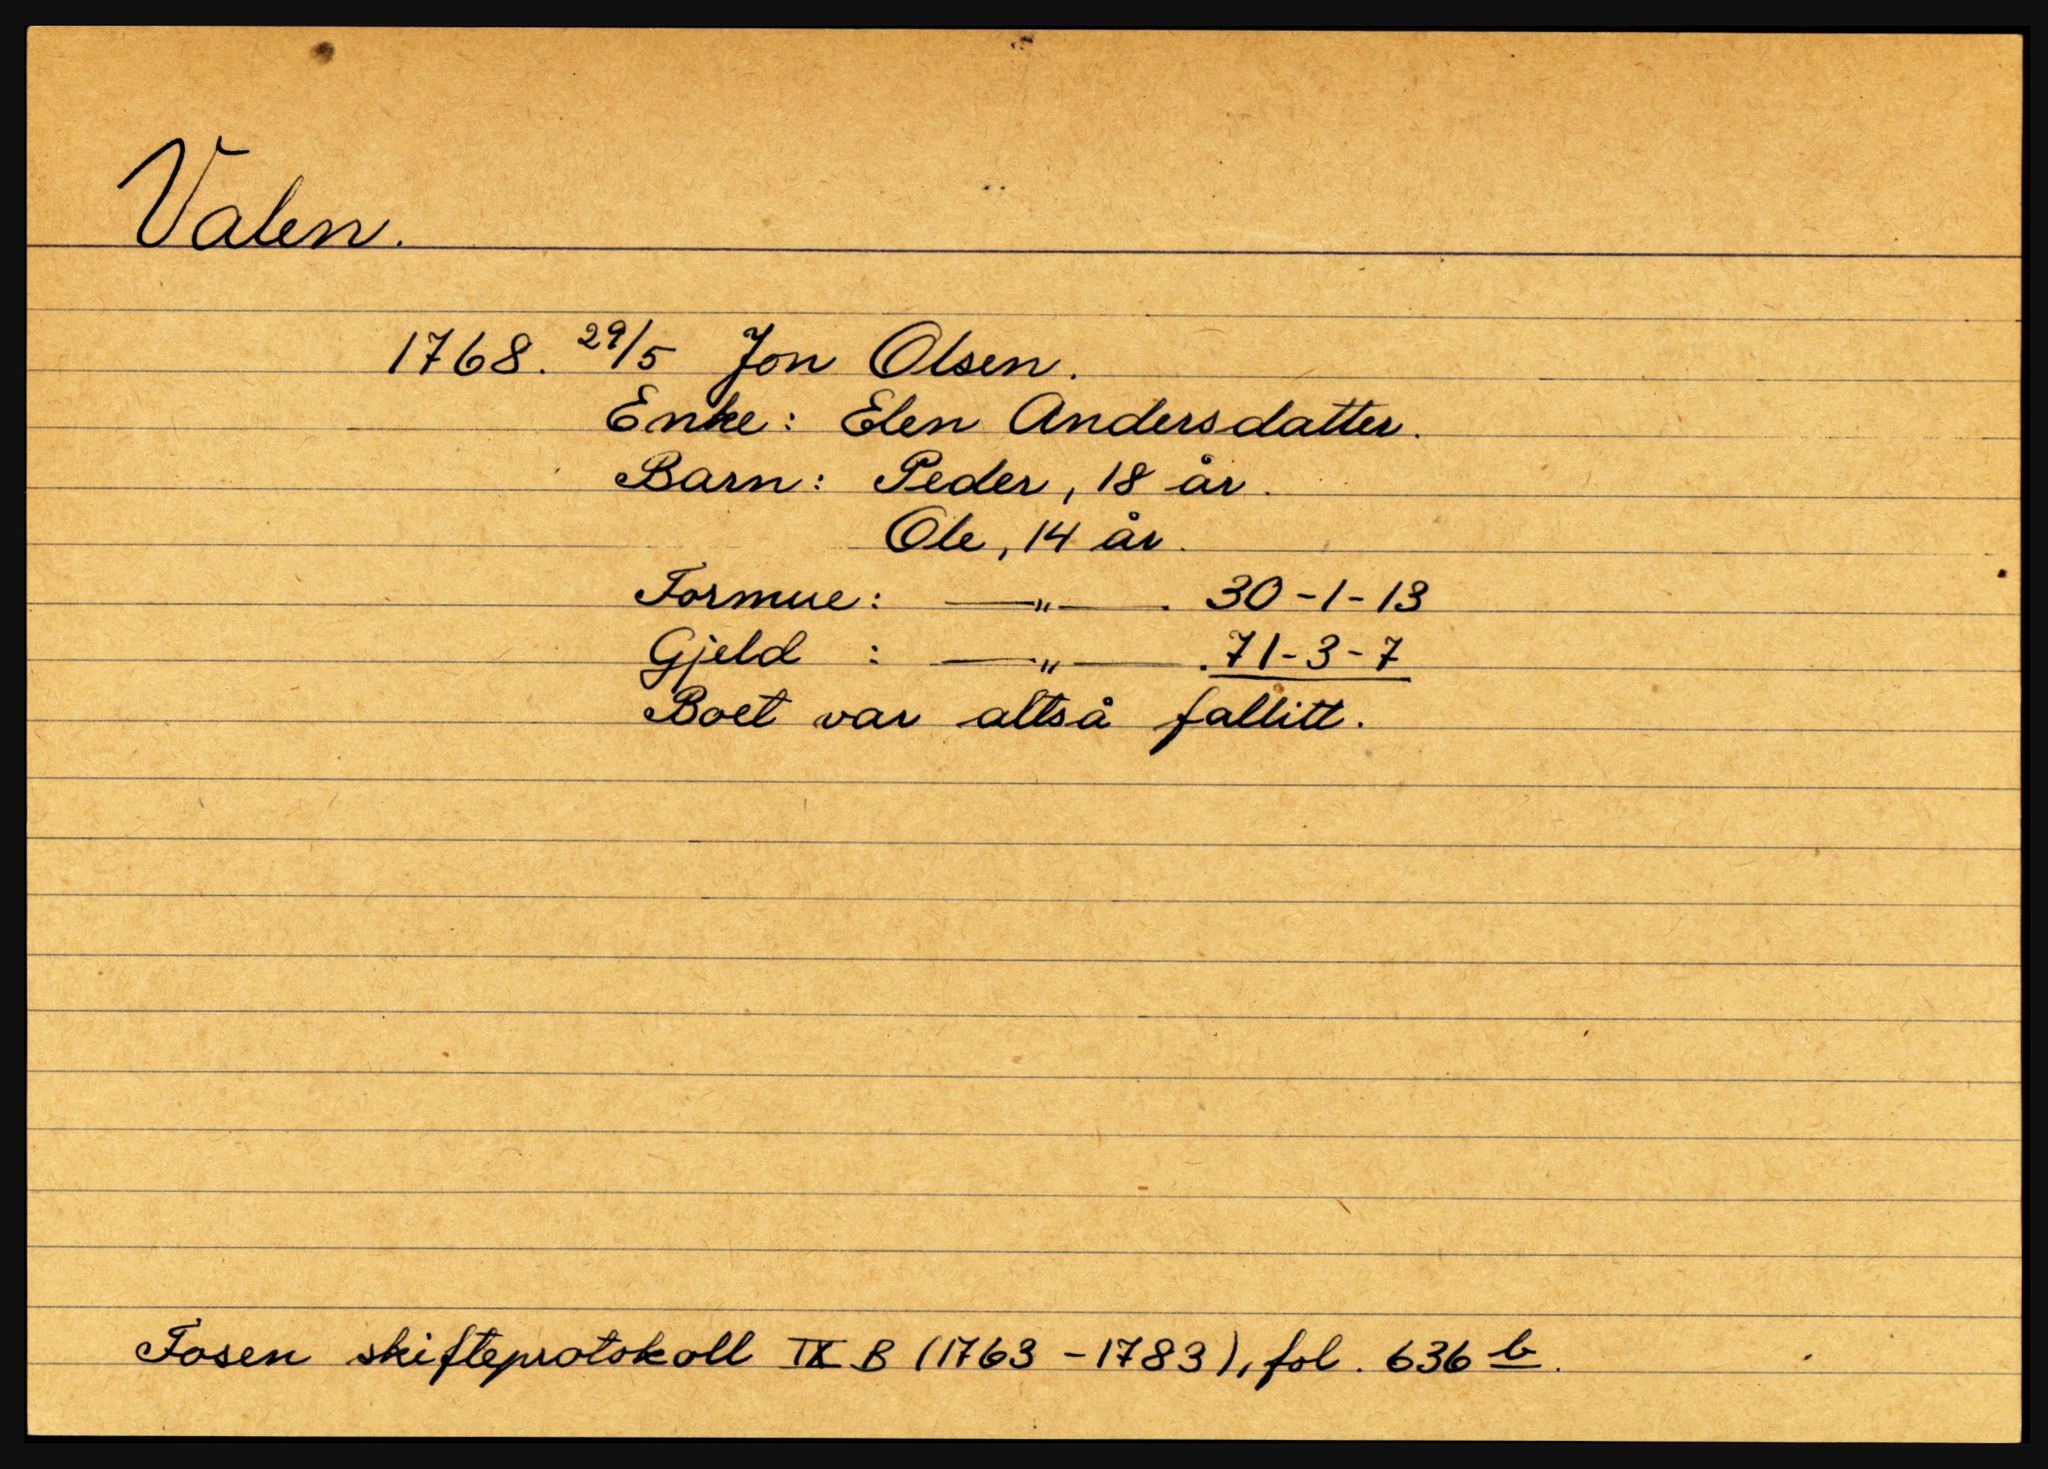 Valen.
1768. 29/5 Jon Olsen.
Enke: Elen Andersdatter.
Barn: Peder, 18 år.
Ole, 14 år.
Formue: —"— . 30-1-13
Gjeld : —"— . 71-3-7
Boet var altså fallitt.
Fosen skifteprotokoll IX B (1763-1783), fol. 636 b.